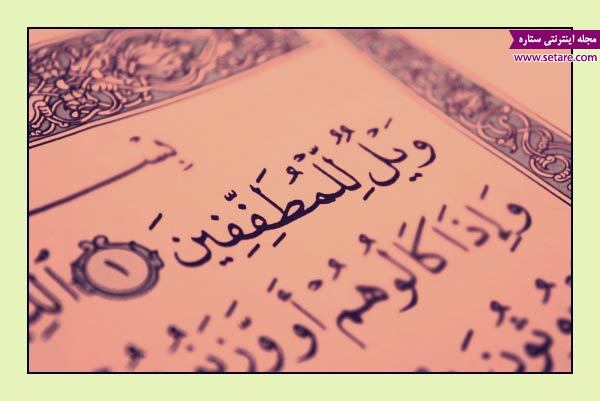 مجله اینترنتی ستاره
www.setare.com
بِسْـ
وَيْلٌ لِّلْمُطَفِّفِينَ ١ ٱلَّذِيـ
وَإِذَا كَالُوهُمْ أَو وَّزَنُـ